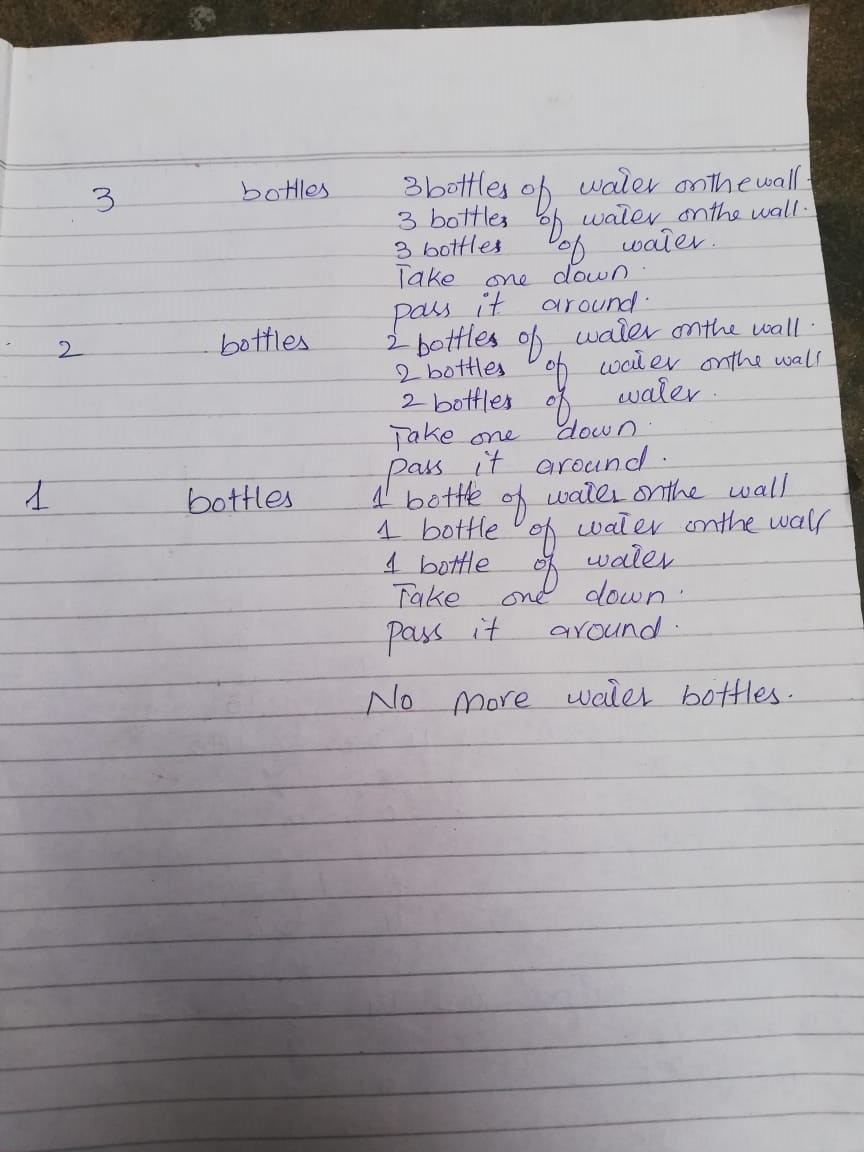 3 bottles 3 bottles of water on the wall.
3 bottles of water on the wall.
3 bottles of water.
Take one down.
pass it around.
2 bottles 2 bottles of water on the wall.
2 bottles of water on the wall
2 bottles of water.
Take one down.
pass it around.
1 bottles 1 bottle of water on the wall
1 bottle of water on the wall
1 bottle of water
Take one down.
pass it around.
No more water bottles.